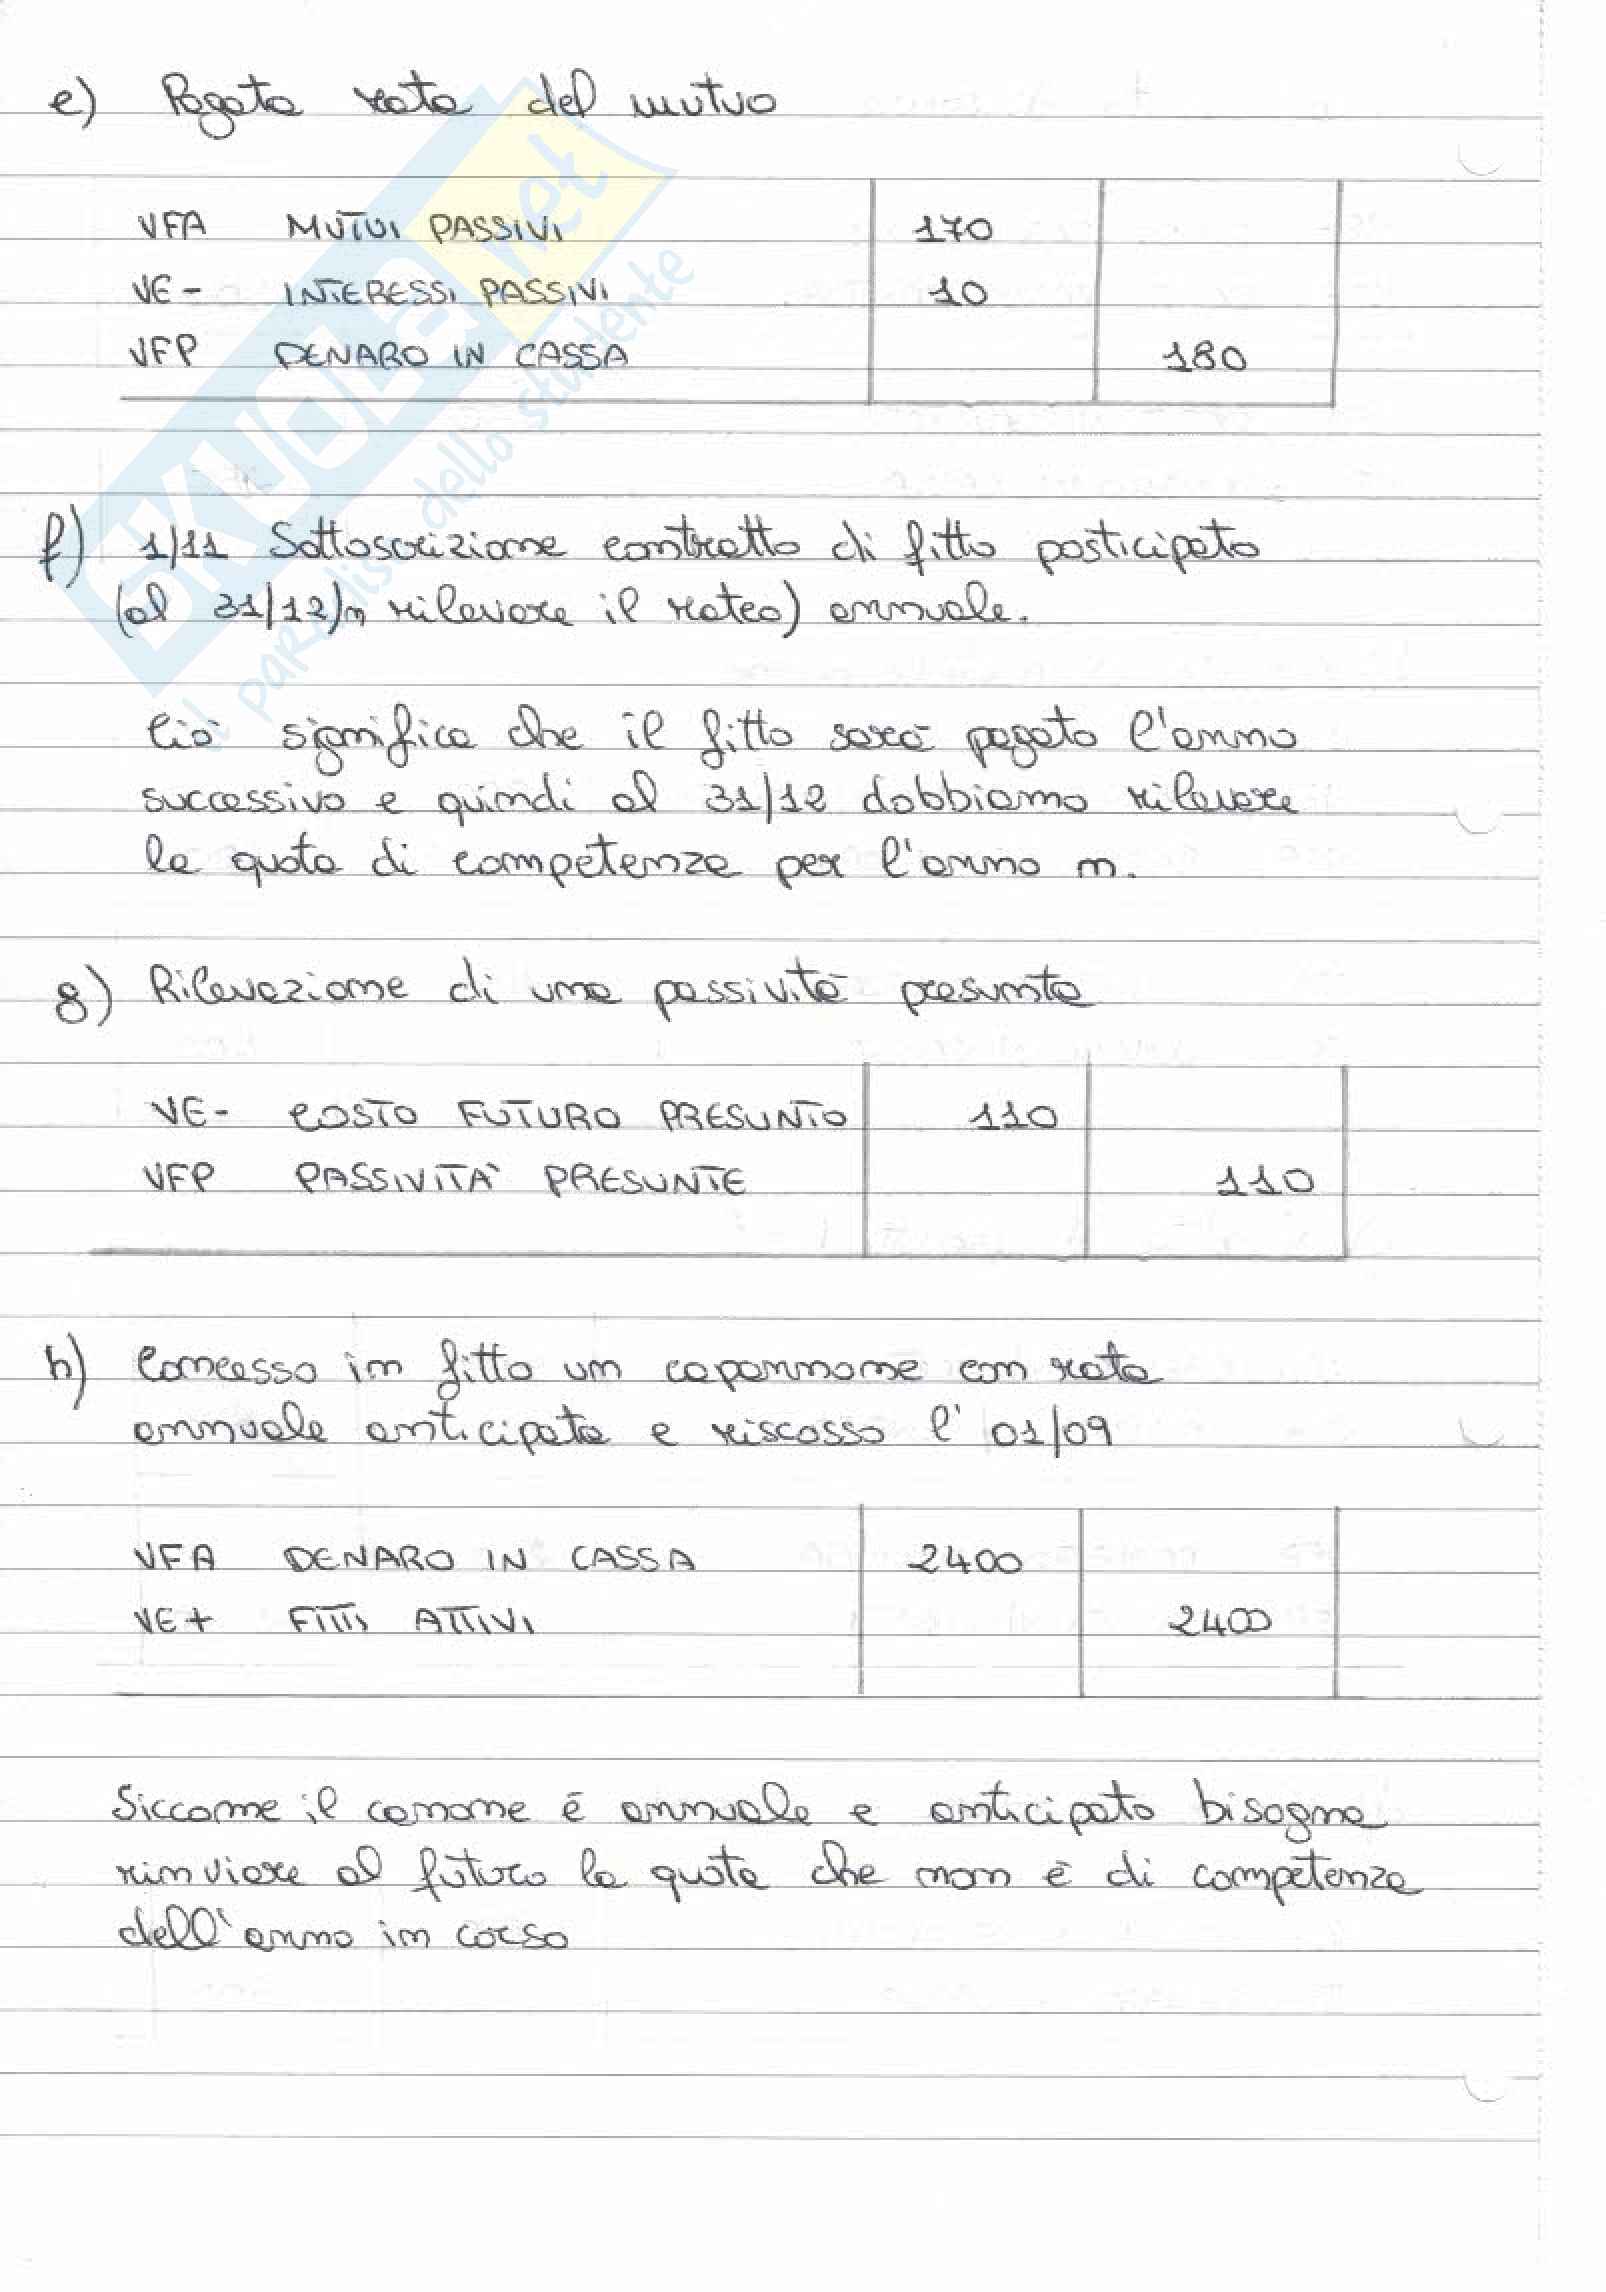 e) Pagata rata del mutuo
VFA MUTUI PASSIVI 170
VE- INTERESSI PASSIVI 10
VFP DENARO IN CASSA 180
f) 1/11 Sottoscrizione contratto di fitto posticipato
(al 31/12/n rilevare il rateo) annuale.
Ciò significa che il fitto sarà pagato l'anno
successivo e quindi al 31/12 dobbiamo rilevare
la quota di competenza per l'anno n.
g) Rilevazione di una passività presunta
VE- COSTO FUTURO PRESUNTO 110
VFP PASSIVITA' PRESUNTE 110
h) Concesso in fitto un capannone con rata
annuale anticipata e riscosso l' 01/09
VFA DENARO IN CASSA 2400
VE+ FITTI ATTIVI 2400
Siccome il canone è annuale e anticipato bisogna
rinviare al futuro la quota che non è di competenza
dell'anno in corso
SKUOLA.net
il paradiso dello studente